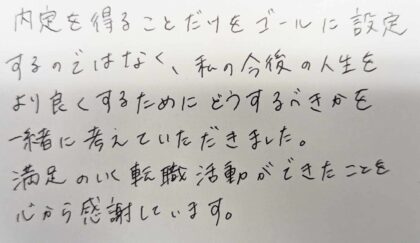 内定を得ることだけをゴールに設定
するのではなく、私の今後の人生を
より良くするためにどうするべきかを
一緒に考えていただきました。
満足のいく転職活動ができたことを
心から感謝しています。